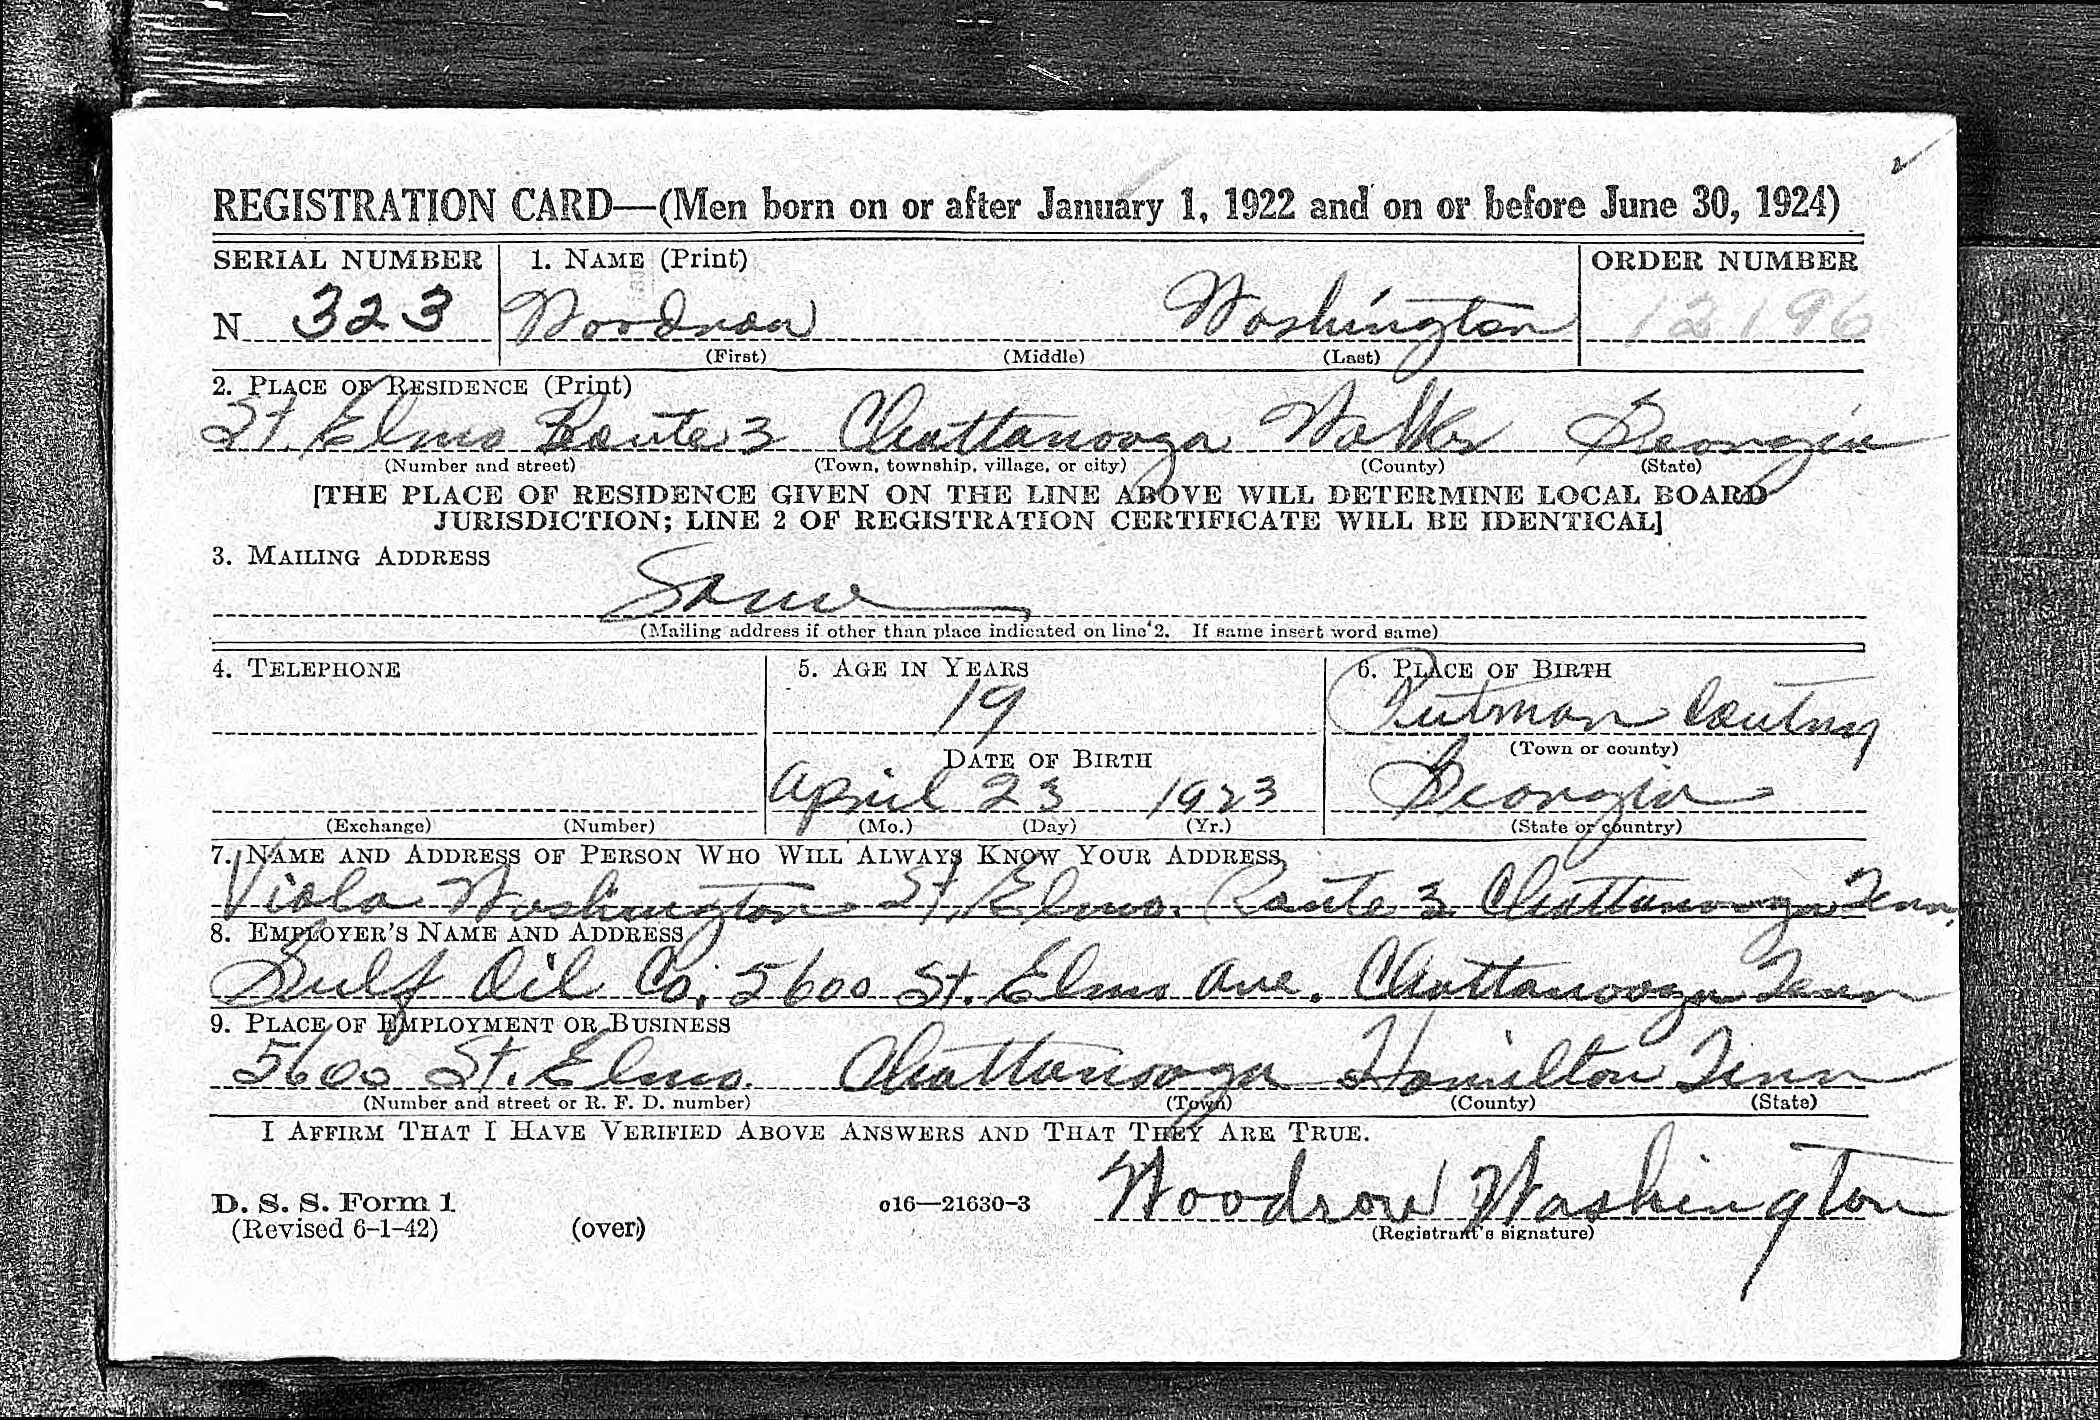 REGISTRATION CARD—(Men born on or after January 1, 1922 and on or before June 30, 1924)
SERIAL NUMBER 1. NAME (Print) ORDER NUMBER
N 323 Woodrow Washington 12196
(First) (Middle) (Last)
2. PLACE OF RESIDENCE (Print)
St. Elmo Route 3 Chattanooga Walker Georgia
(Number and street) (Town, township, village, or city) (County) (State)
[THE PLACE OF RESIDENCE GIVEN ON THE LINE ABOVE WILL DETERMINE LOCAL BOARD
JURISDICTION; LINE 2 OF REGISTRATION CERTIFICATE WILL BE IDENTICAL]
3. MAILING ADDRESS
Same
(Mailing address if other than place indicated on line 2. If same insert word same)
4. TELEPHONE 5. AGE IN YEARS 6. PLACE OF BIRTH
19 Putman Coutny
(Town or county)
DATE OF BIRTH
April 23 1923 Georgia
(Exchange) (Number) (Mo.) (Day) (Yr.) (State or country)
7. NAME AND ADDRESS OF PERSON WHO WILL ALWAYS KNOW YOUR ADDRESS
Viola Washington St. Elmo. Route 3 Chattanooga Tenn.
8. EMPLOYER'S NAME AND ADDRESS
Gulf Oil Co. 5600 St. Elmo Ave. Chattanooga Tenn
9. PLACE OF EMPLOYMENT OR BUSINESS
5600 St. Elmo. Chattanooga Hamilton Tenn
(Number and street or R. F. D. number) (Town) (County) (State)
I AFFIRM THAT I HAVE VERIFIED ABOVE ANSWERS AND THAT THEY ARE TRUE.
Woodrow Washington
D. S. S. Form 1 c16—21630-3
(Revised 6-1-42) (over) (Registrant's signature)